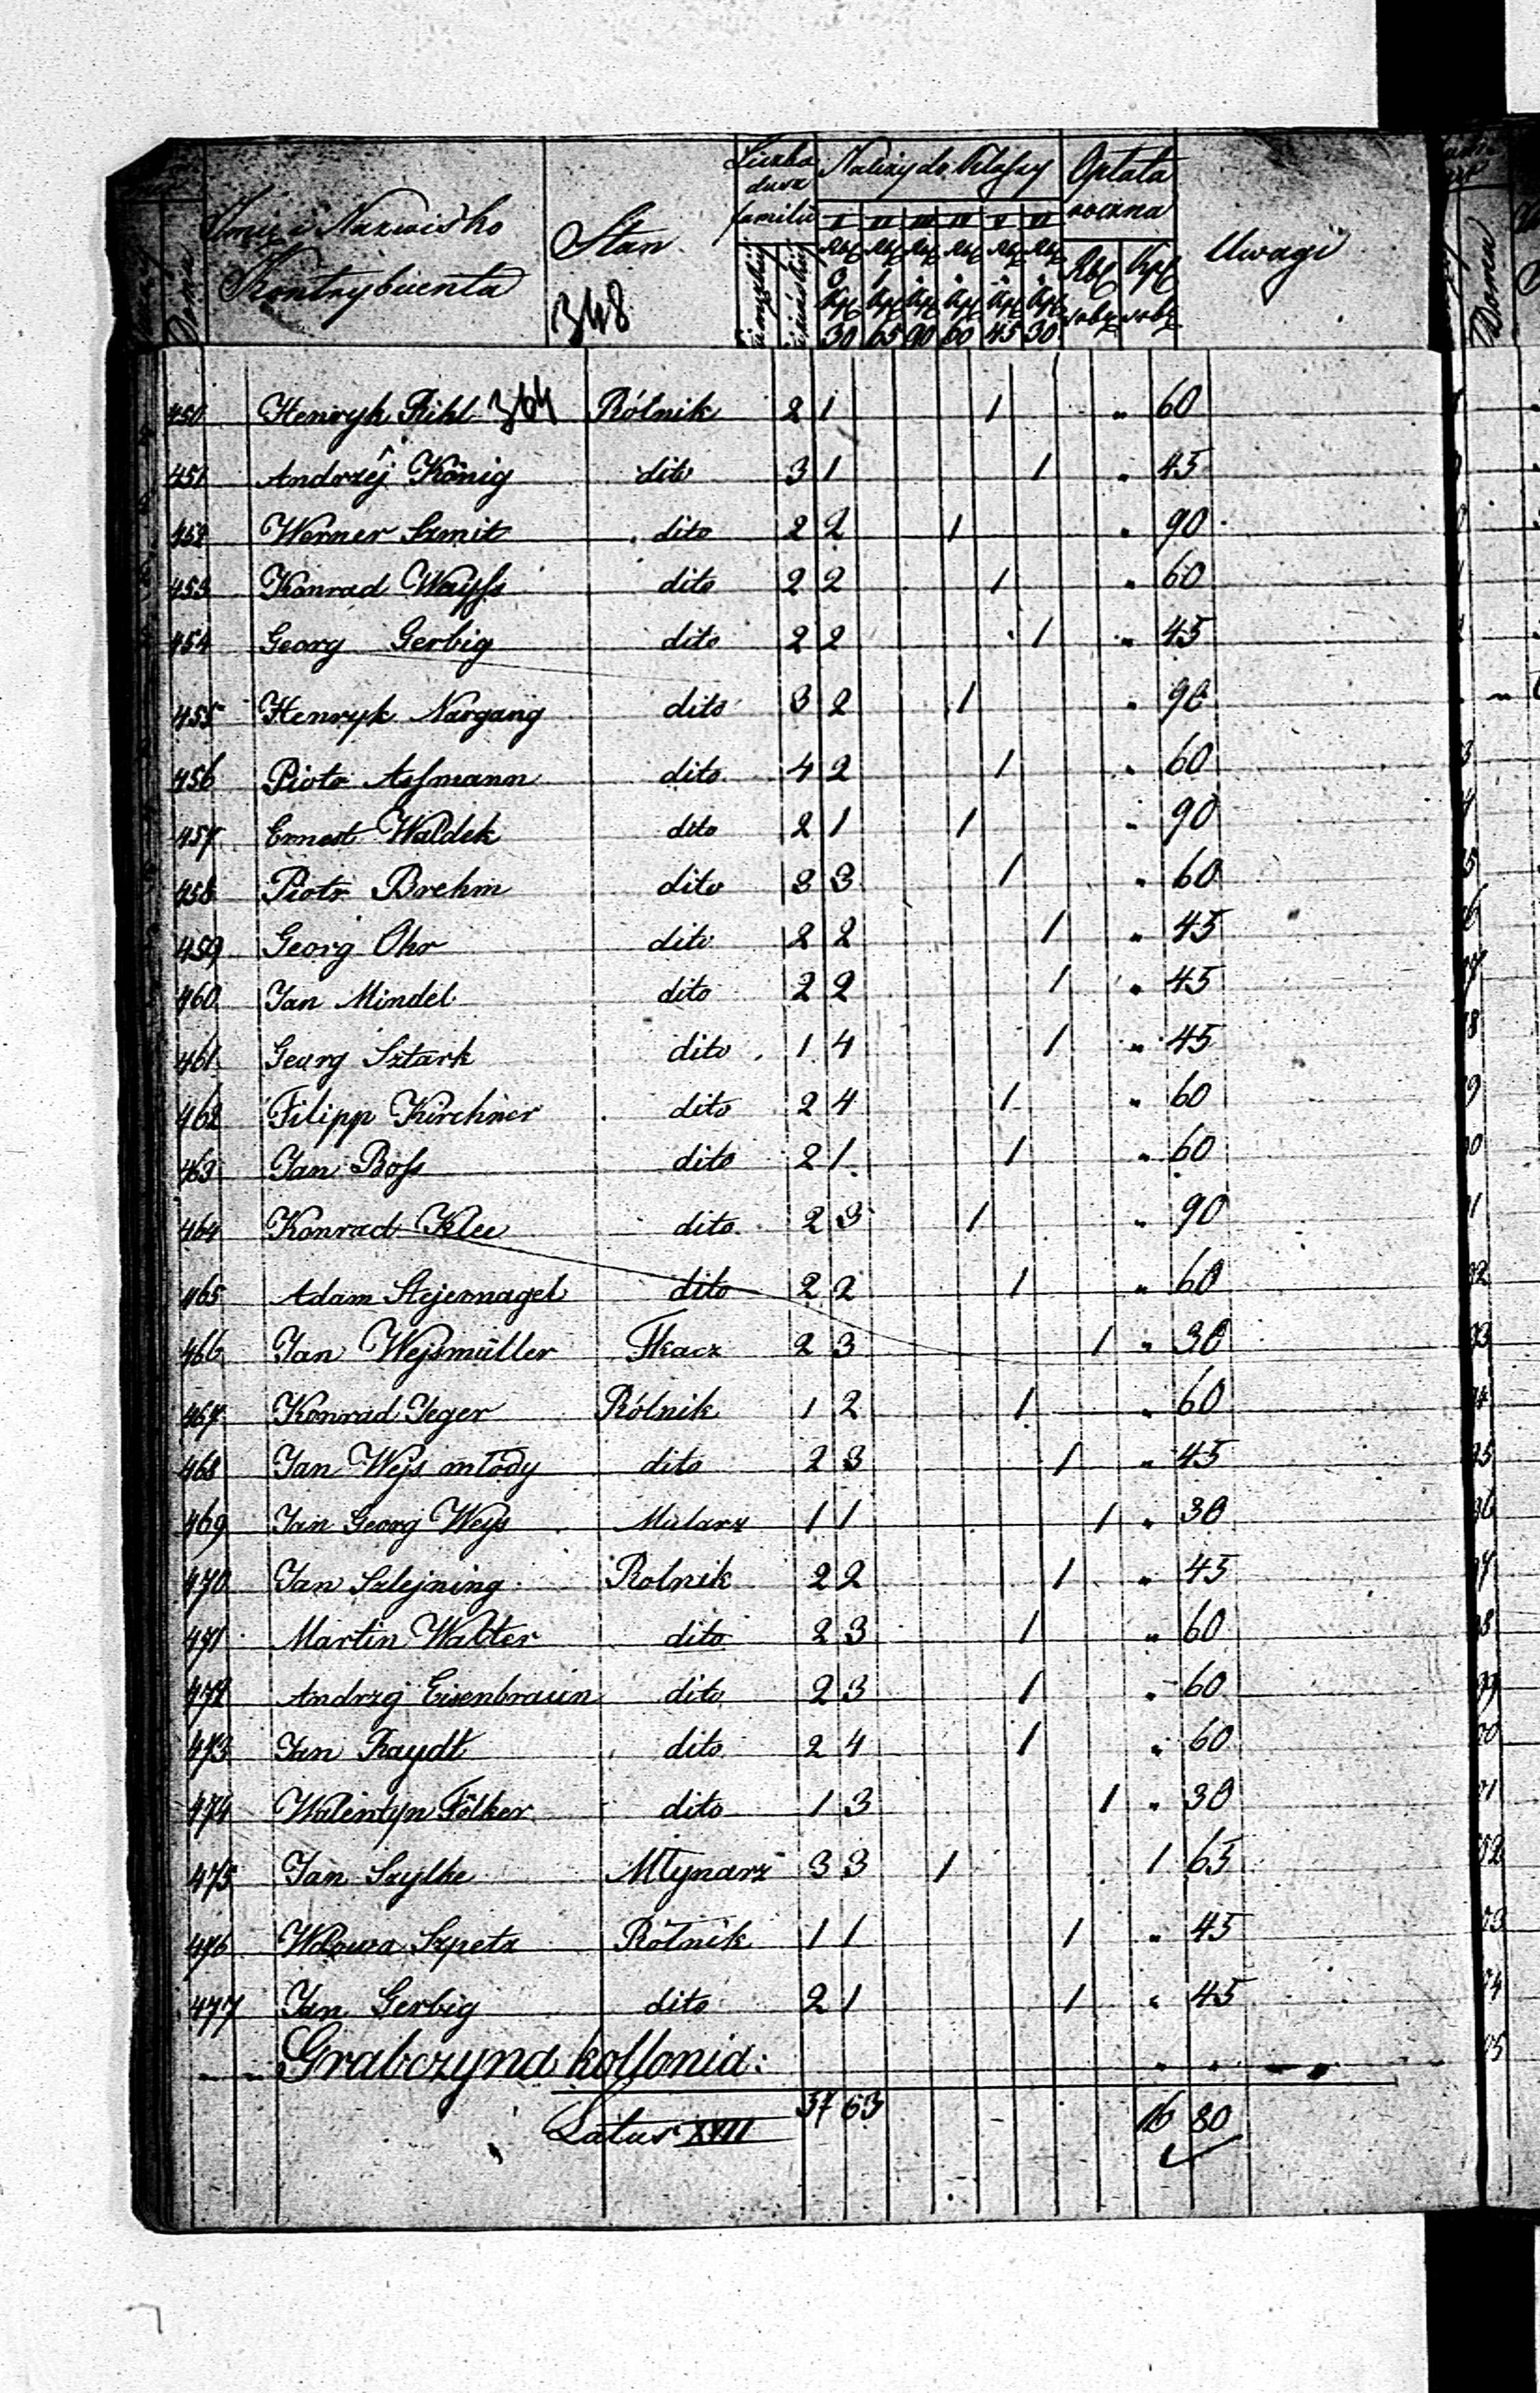 Imię i Nazwisko Kontrybuenta Stan Liczba dusz familii Należy do Klassy Opłata roczna Uwagi
348
I II III IV V VI
Rbl Rbl Rbl Rbl Rbl Rbl Rbl Kp
3 1 " " " "
Kp Kp Kp Kp Kp Kp srbr srbr
30 65 90 60 45 30
450 Henryk Rihl 364 Rólnik 2 1 1 " 60
451 Andrzéj König dito 3 1 1 " 45
452 Werner Szmit dito 2 2 1 " 90
453 Konrad Wayss dito 2 2 1 " 60
454 Georg Gerbig dito 2 2 1 " 45
455 Henryk Nargang dito 3 2 1 " 90
456 Piotr Assmann dito 4 2 1 " 60
457 Ernest Waldek dito 2 1 1 " 90
458 Piotr Brehm dito 3 3 1 " 60
459 Georg Ohr dito 2 2 1 " 45
460 Jan Mindel dito 2 2 1 " 45
461 Georg Sztark dito 1 4 1 " 45
462 Filipp Kirchner dito 2 4 1 " 60
463 Jan Boss dito 2 1 1 " 60
464 Konrad Klee dito 2 3 1 " 90
465 Adam Stejernagel dito 2 2 1 " 60
466 Jan Wejsmüller Tkacz 2 3 1 " 30
467 Konrad Jeger Rólnik 1 2 1 " 60
468 Jan Wejs młody dito 2 3 1 " 45
469 Jan Georg Weys Mularz 1 1 1 " 30
470 Jan Szlejning Rolnik 2 2 1 " 45
471 Martin Walter dito 2 3 1 " 60
472 Andrzej Eisenbraun dito 2 3 1 " 60
473 Jan Raydt dito 2 4 1 " 60
474 Walentyn Fölker dito 1 3 1 " 30
475 Jan Szylke Młynarz 3 3 1 1 65
476 Wdowa Szpetz Rólnik 1 1 1 " 45
477 Jan Gerbig dito 2 1 1 " 45
Grabczyna kollonia: " "
Latus XVII 57 63 16 80